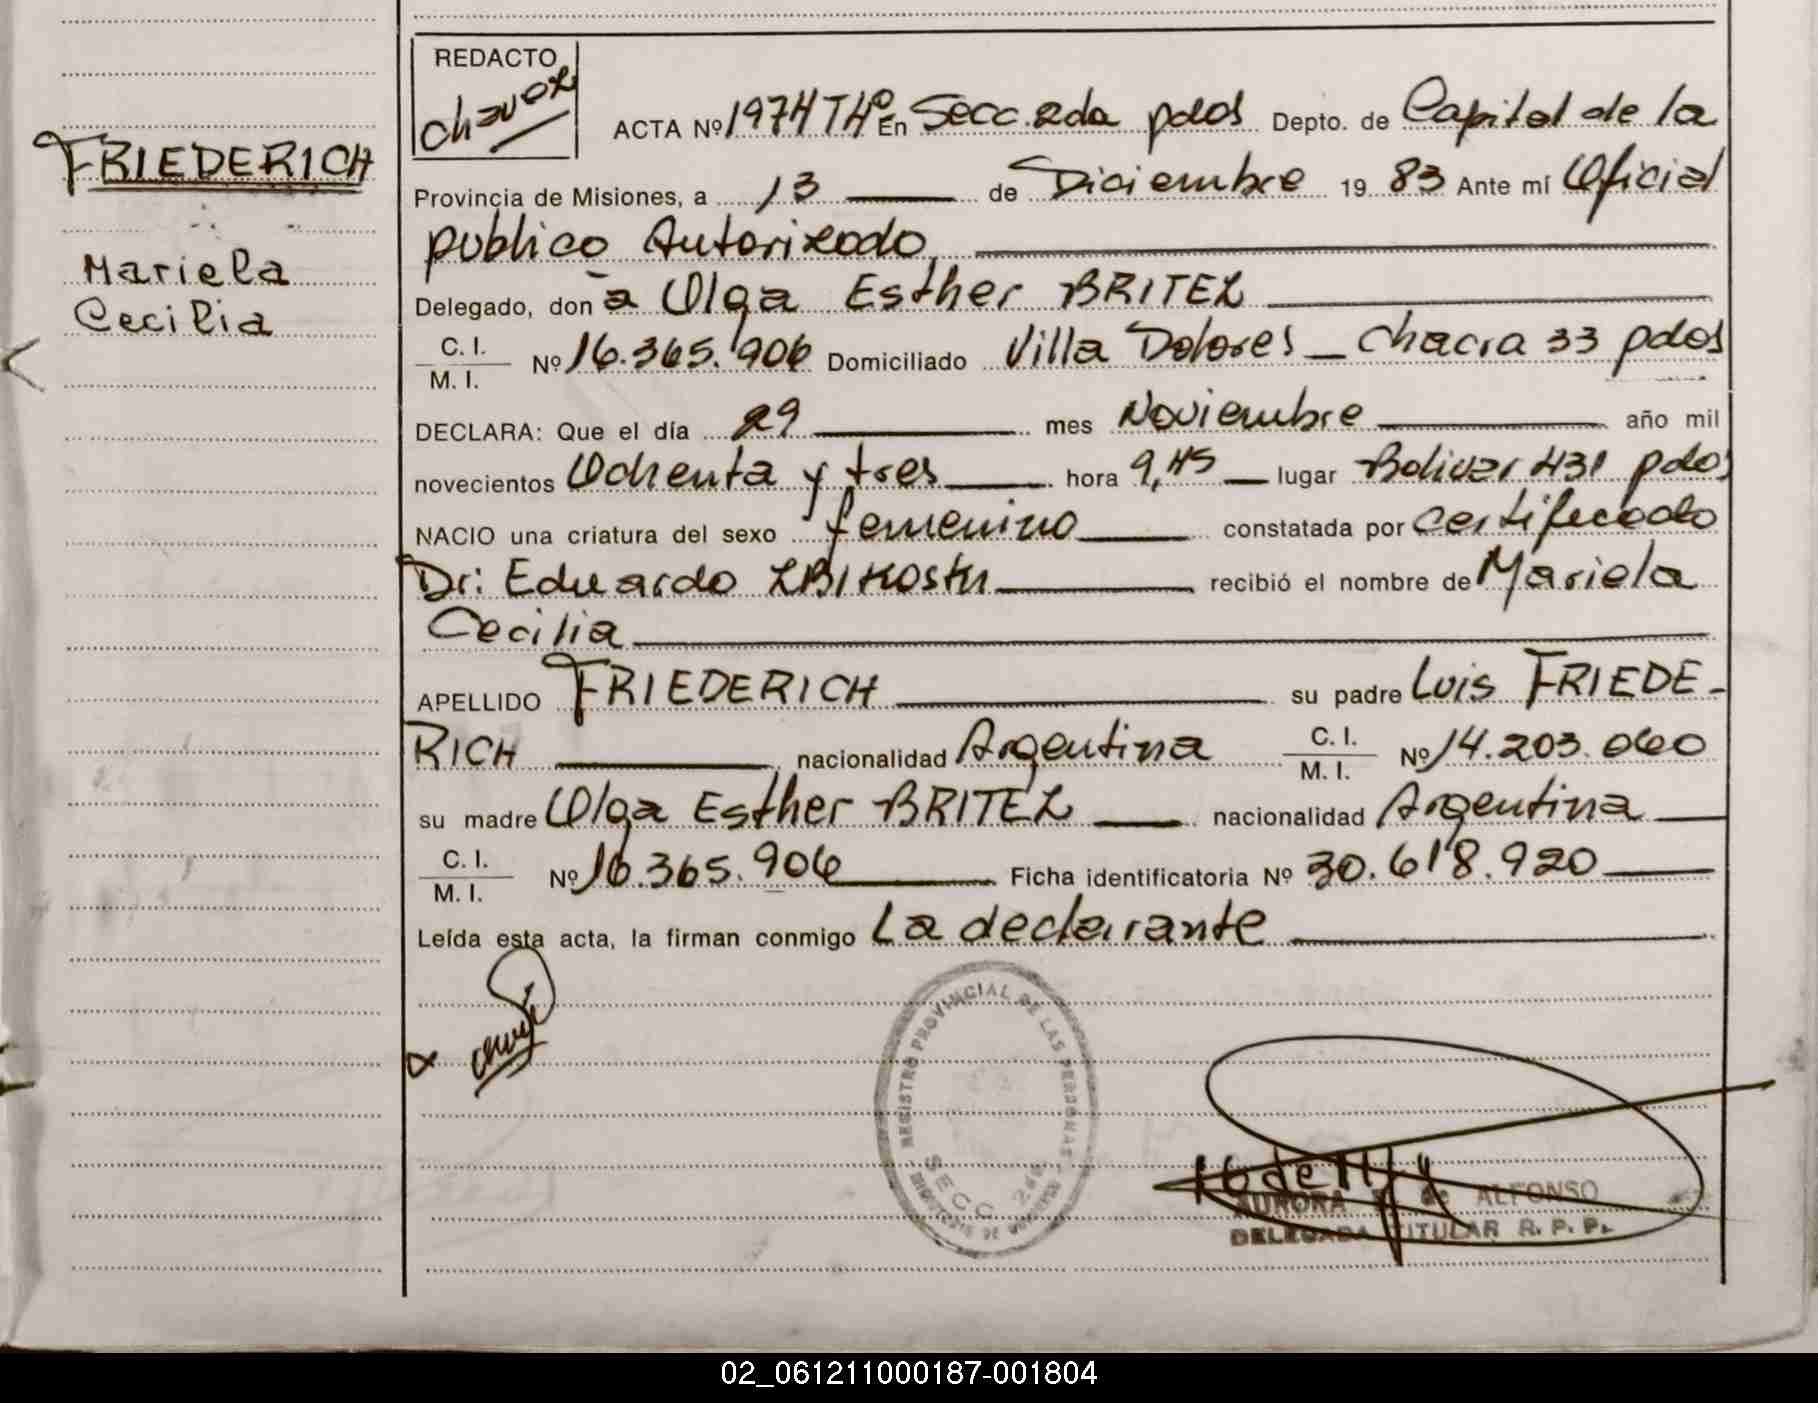 REDACTO
chavez
FRIEDERICH
Mariela
Cecilia
ACTA Nº 1974 Tº 4º En Secc. 2da pdas Depto. de Capital de la
Provincia de Misiones, a 13 de Diciembre 19 83 Ante mí Oficial
publico Autorizado
Delegado, don a Olga Esther BRITEZ
C. I.
M. I. Nº 16.365.906 Domiciliado Villa Dolores - Chacra 33 pdas
DECLARA: Que el día 29 mes Noviembre año mil
novecientos Ochenta y tres hora 9,45 lugar Bolivar 431 pdas
NACIO una criatura del sexo femenino constatada por certificado
Dr: Eduardo recibió el nombre de Mariela
Cecilia
APELLIDO FRIEDERICH su padre Luis FRIEDE-
RICH nacionalidad Argentina C. I.
M. I. Nº 14.203.060
su madre Olga Esther BRITEZ nacionalidad Argentina
C. I.
M. I. Nº 16.365.906 Ficha identificatoria Nº 30.618.920
Leída esta acta, la firman conmigo La declarante
REGISTRO PROVINCIAL DE LAS PERSONAS
SECC. 2da
AURORA de ALFONSO
DELEGADA TITULAR R. P. P.
02_061211000187-001804